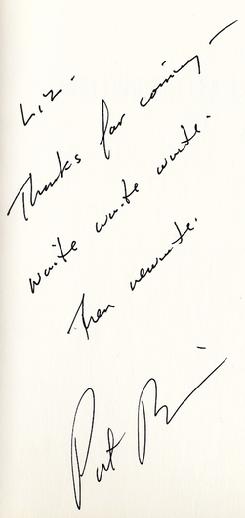 Liz -
Thanks for coming -
write write write.
Then rewrite.
Pat